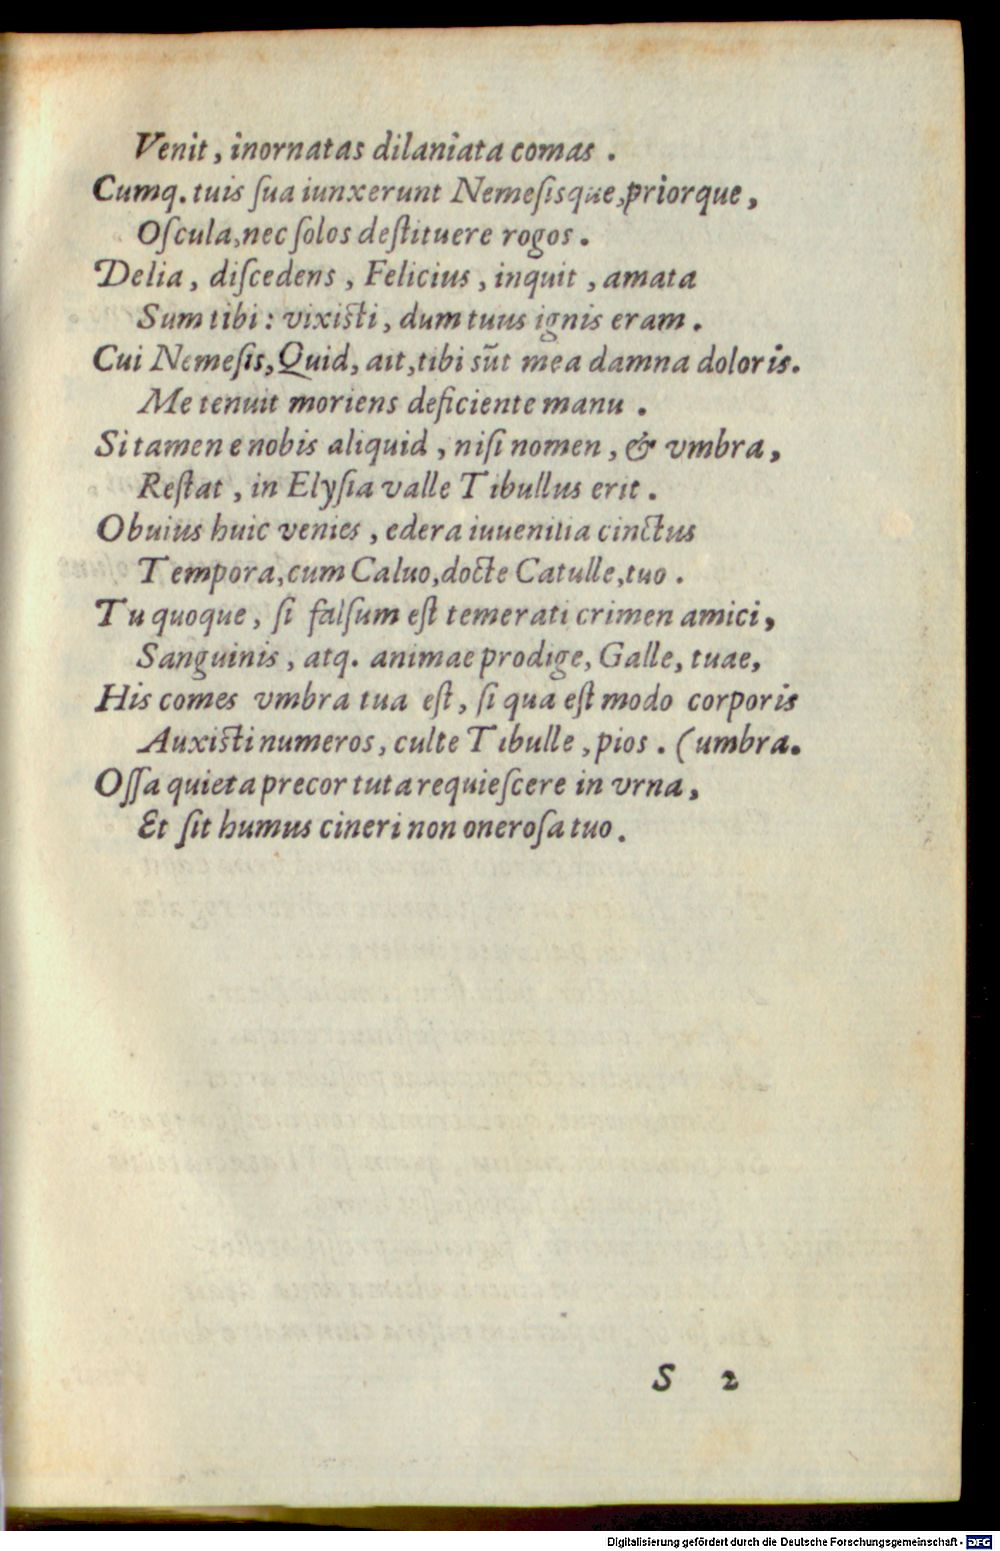 Venit, inornatas dilaniata comas.
Cumq. tuis ſua iunxerunt Nemeſisque, priorque,
Oſcula, nec ſolos deſtituere rogos.
Delia, diſcedens, Felicius, inquit, amata
Sum tibi: vixisti, dum tuus ignis eram.
Cui Nemeſis, Quid, ait, tibi sũt mea damna doloris.
Me tenuit moriens deficiente manu.
Si tamen e nobis aliquid, niſi nomen, & vmbra,
Reſtat, in Elyſia valle Tibullus erit.
Obuius huic venies, edera iuuenilia cinctus
Tempora, cum Caluo, docte Catulle, tuo.
Tu quoque, ſi falſum eſt temerati crimen amici,
Sanguinis, atq. animae prodige, Galle, tuae,
His comes vmbra tua eſt, ſi qua eſt modo corporis
Auxisti numeros, culte Tibulle, pios. (umbra.
Oſſa quieta precor tuta requieſcere in vrna,
Et ſit humus cineri non oneroſa tuo.
S 2
Digitalisierung gefördert durch die Deutsche Forschungsgemeinschaft - DFG